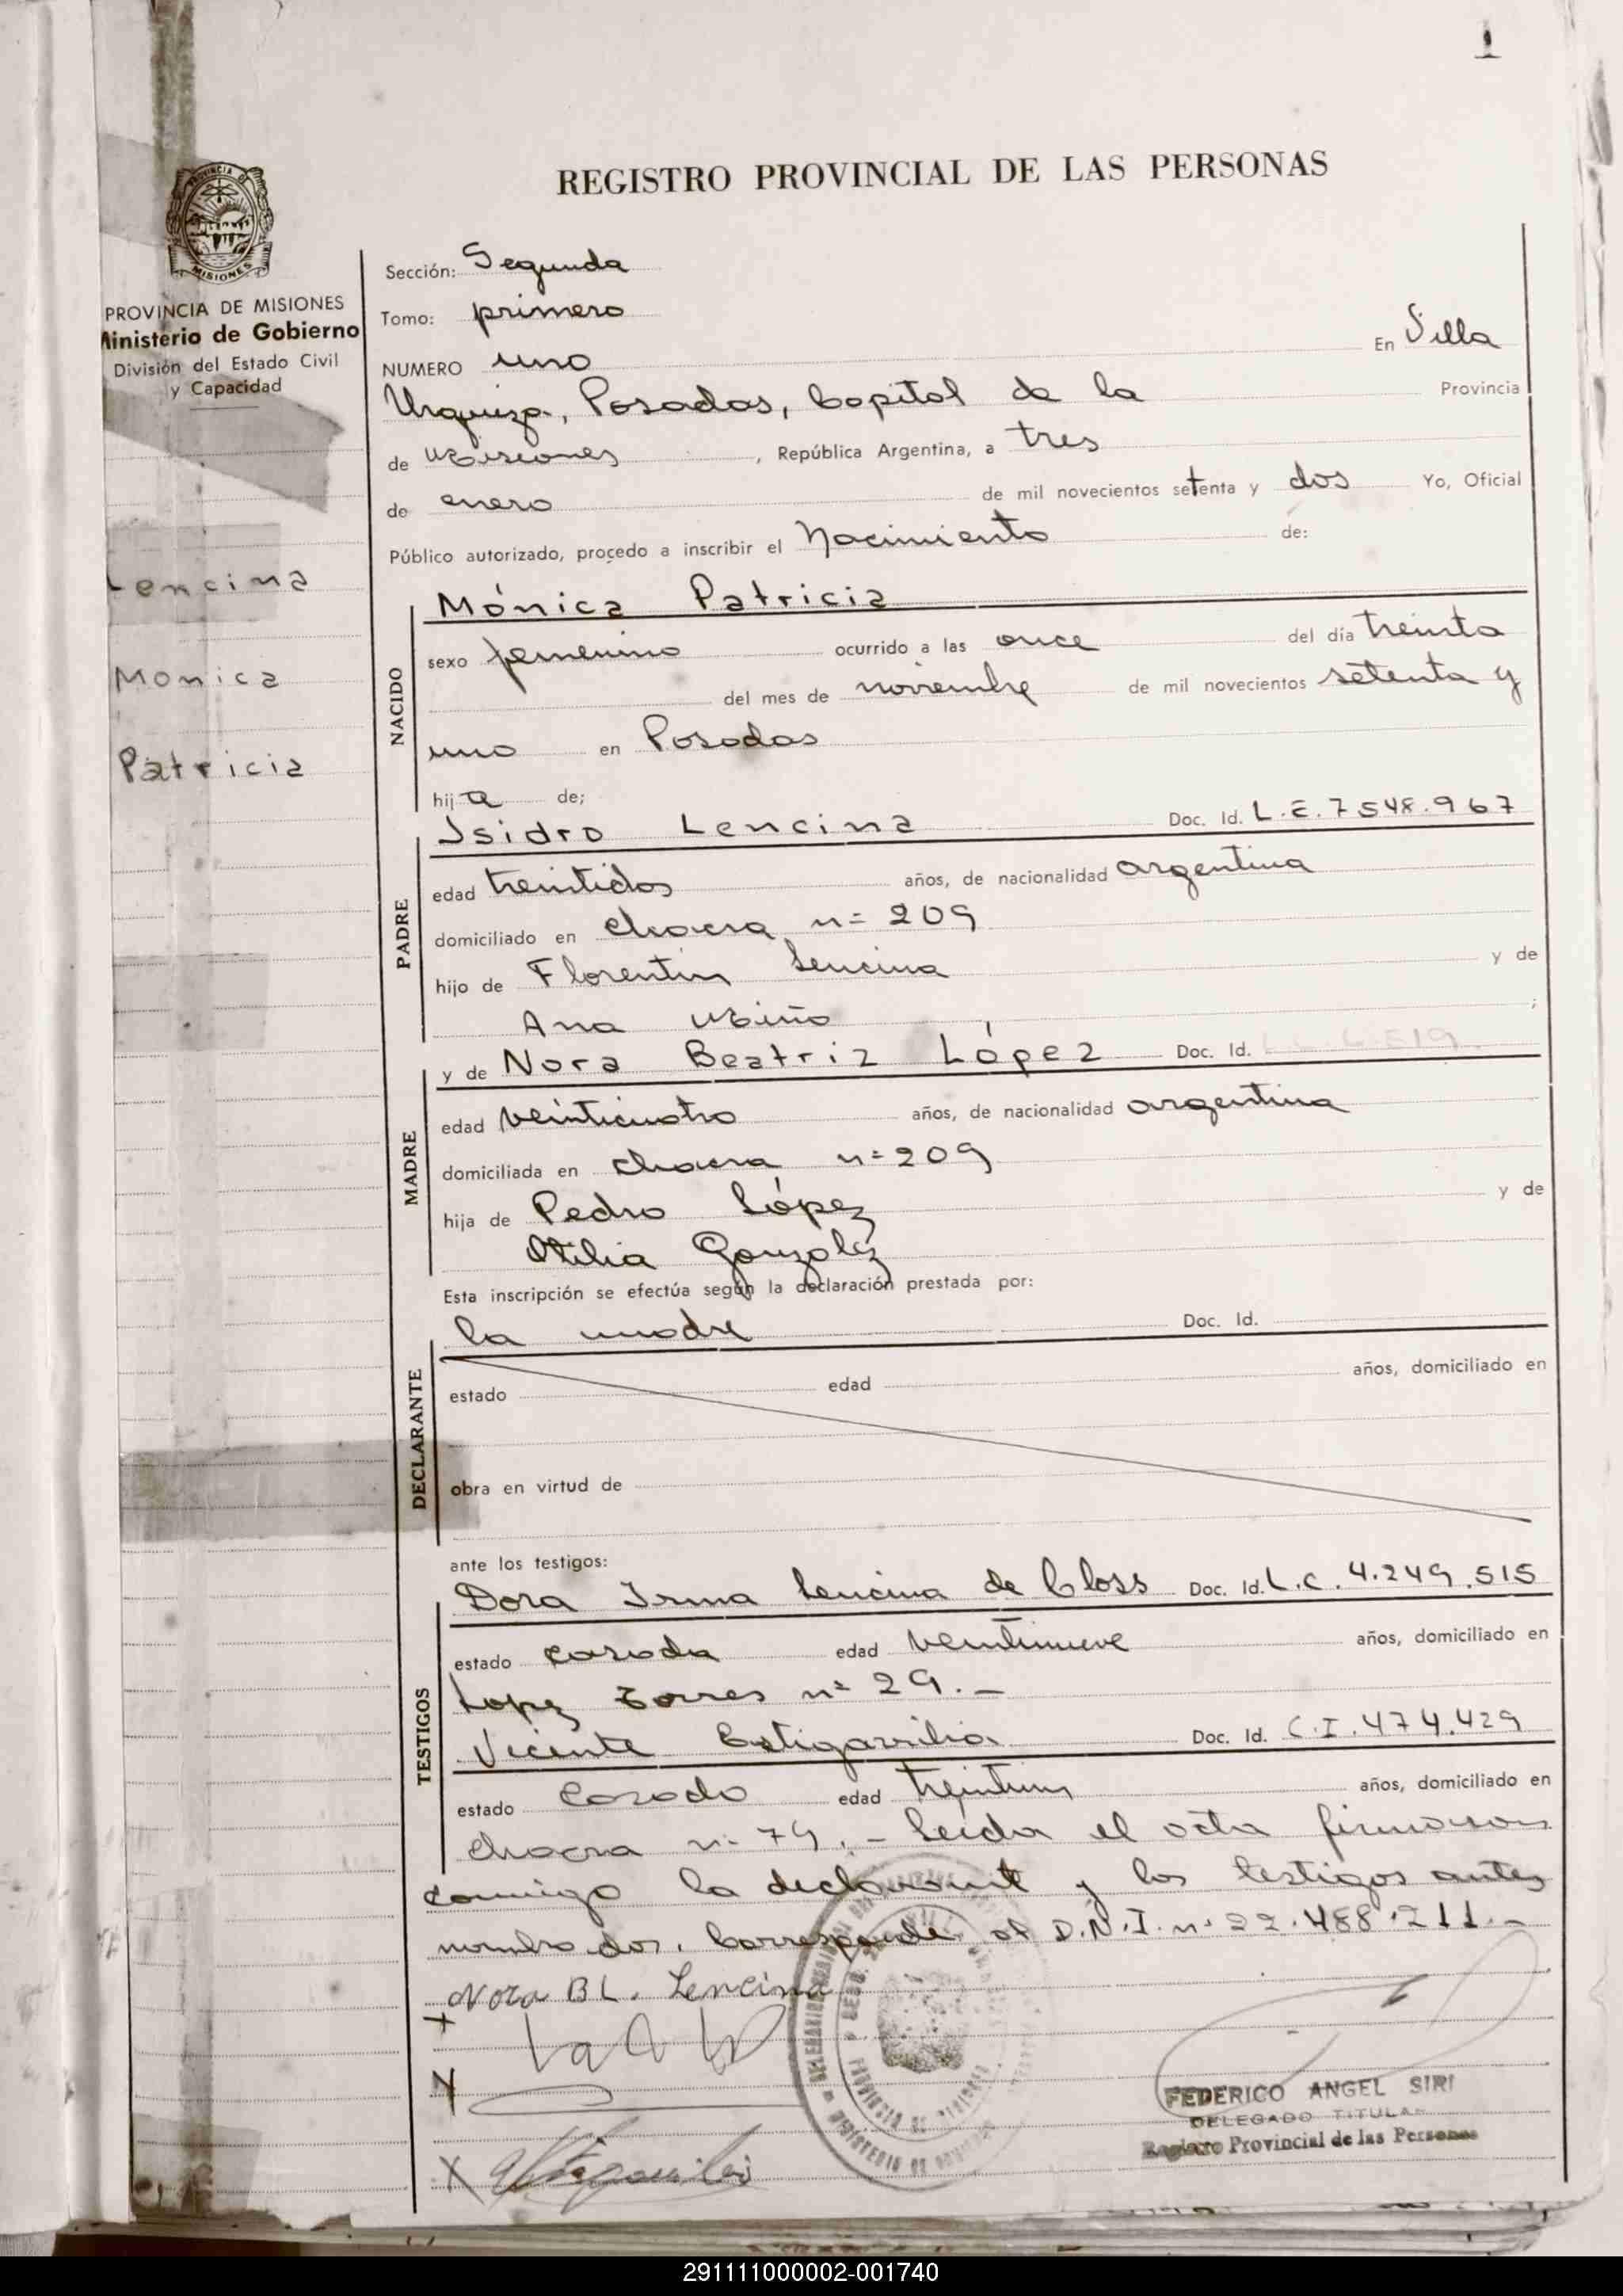 1
REGISTRO PROVINCIAL DE LAS PERSONAS
PROVINCIA DE MISIONES
Ministerio de Gobierno
División del Estado Civil
y Capacidad
Lencina
Monica
Patricia
Sección: Segunda
Tomo: primero
NUMERO uno En Villa
Urquiza, Posadas, Capital de la Provincia
de Misiones, República Argentina, a tres
de enero de mil novecientos setenta y dos Yo, Oficial
Público autorizado, procedo a inscribir el Nacimiento de:
NACIDO
Mónica Patricia
sexo femenino ocurrido a las once del día treinta
del mes de noviembre de mil novecientos setenta y
uno en Posadas
hija de;
PADRE
Isidro Lencina Doc. Id. L.E. 7548.967
edad treintidos años, de nacionalidad argentina
domiciliado en chacra n= 209
hijo de Florentin Lencina y de
Ana Miño ;
MADRE
y de Nora Beatriz López Doc. Id.
edad veinticuatro años, de nacionalidad argentina
domiciliada en chacra n= 209
hija de Pedro López y de
Otilia González
Esta inscripción se efectúa según la declaración prestada por:
DECLARANTE
la madre Doc. Id.
estado edad años, domiciliado en
obra en virtud de
ante los testigos:
TESTIGOS
Dora Irma Lencina de Closs Doc. Id. L.C. 4.249.515
estado casada edad veintinueve años, domiciliado en
Lopez Torres n= 29.-
Vicente Estigarribia Doc. Id. C.I. 474.429
estado casado edad treintiun años, domiciliado en
chacra n= 79.- Leida el acta firmaron
conmigo la declarante y los testigos antes
nombrados. Corresponde al D.N.I. n= 22.488.211.-
Nora B L. Lencina
FEDERICO ANGEL SIRI
DELEGADO TITULAR
Registro Provincial de las Personas
291111000002-001740